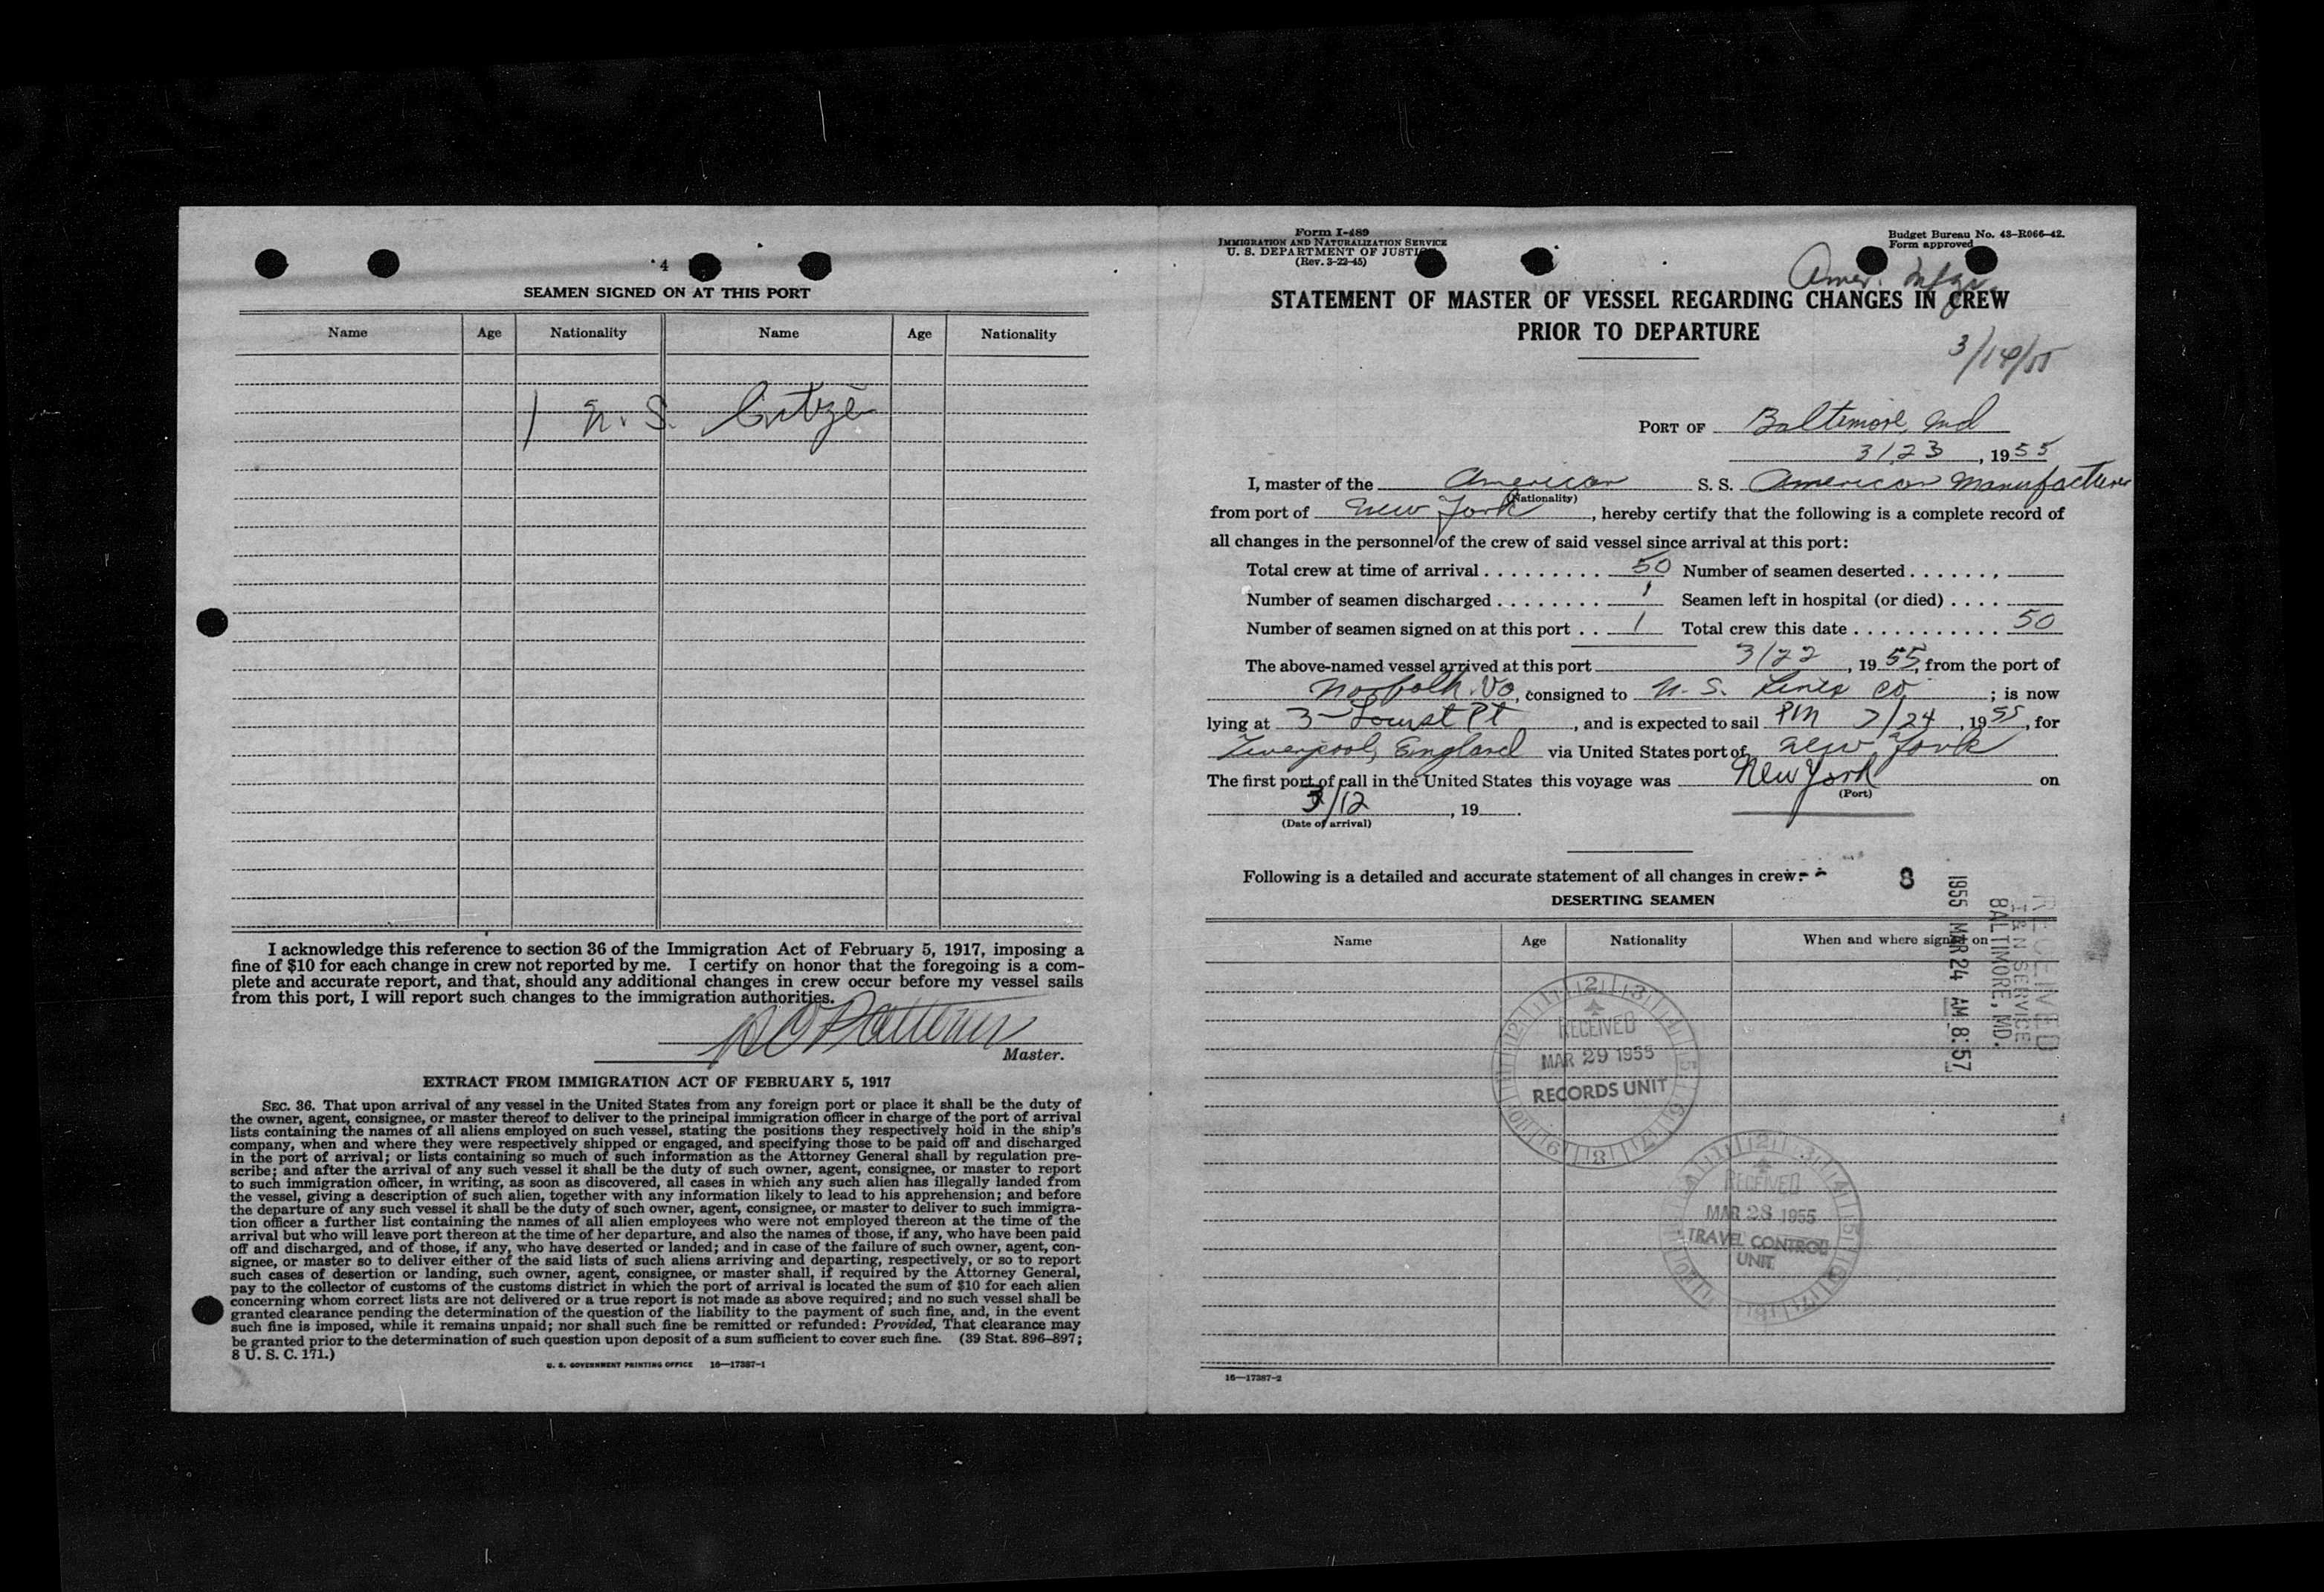 4
SEAMEN SIGNED ON AT THIS PORT
Name Age Nationality Name Age Nationality
1 U. S. Citizen
I acknowledge this reference to section 36 of the Immigration Act of February 5, 1917, imposing a
fine of $10 for each change in crew not reported by me. I certify on honor that the foregoing is a com-
plete and accurate report, and that, should any additional changes in crew occur before my vessel sails
from this port, I will report such changes to the immigration authorities.
Master.
EXTRACT FROM IMMIGRATION ACT OF FEBRUARY 5, 1917
SEC. 36. That upon arrival of any vessel in the United States from any foreign port or place it shall be the duty of
the owner, agent, consignee, or master thereof to deliver to the principal immigration officer in charge of the port of arrival
lists containing the names of all aliens employed on such vessel, stating the positions they respectively hold in the ship's
company, when and where they were respectively shipped or engaged, and specifying those to be paid off and discharged
in the port of arrival; or lists containing so much of such information as the Attorney General shall by regulation pre-
scribe; and after the arrival of any such vessel it shall be the duty of such owner, agent, consignee, or master to report
to such immigration officer, in writing, as soon as discovered, all cases in which any such alien has illegally landed from
the vessel, giving a description of such alien, together with any information likely to lead to his apprehension; and before
the departure of any such vessel it shall be the duty of such owner, agent, consignee, or master to deliver to such immigra-
tion officer a further list containing the names of all alien employees who were not employed thereon at the time of the
arrival but who will leave port thereon at the time of her departure, and also the names of those, if any, who have been paid
off and discharged, and of those, if any, who have deserted or landed; and in case of the failure of such owner, agent, con-
signee, or master so to deliver either of the said lists of such aliens arriving and departing, respectively, or so to report
such cases of desertion or landing, such owner, agent, consignee, or master shall, if required by the Attorney General,
pay to the collector of customs of the customs district in which the port of arrival is located the sum of $10 for each alien
concerning whom correct lists are not delivered or a true report is not made as above required; and no such vessel shall be
granted clearance pending the determination of the question of the liability to the payment of such fine, and, in the event
such fine is imposed, while it remains unpaid; nor shall such fine be remitted or refunded: Provided, That clearance may
be granted prior to the determination of such question upon deposit of a sum sufficient to cover such fine. (39 Stat. 896–897;
8 U. S. C. 171.)
U. S. GOVERNMENT PRINTING OFFICE 16—17387-1
Form I-489
IMMIGRATION AND NATURALIZATION SERVICE
U. S. DEPARTMENT OF JUSTICE
(Rev. 3-22-45)
Budget Bureau No. 43-R066-42.
Form approved
Amer. Mfgr.
STATEMENT OF MASTER OF VESSEL REGARDING CHANGES IN CREW
PRIOR TO DEPARTURE
PORT OF Baltimore, Md
3/23, 1955
I, master of the American S. S. American Manufacturer
(Nationality)
from port of New York, hereby certify that the following is a complete record of
all changes in the personnel of the crew of said vessel since arrival at this port:
Total crew at time of arrival . . . . . . . . . 50 Number of seamen deserted . . . . . . .
Number of seamen discharged . . . . . . . . 1 Seamen left in hospital (or died) . . . .
Number of seamen signed on at this port . . 1 Total crew this date . . . . . . . . . . . 50
The above-named vessel arrived at this port 3/22, 1955, from the port of
Norfolk, Va, consigned to U. S. Lines Co; is now
lying at 3-Locust Pt, and is expected to sail PM 3/24, 1955, for
Liverpool, England via United States port of New York
The first port of call in the United States this voyage was New York on
(Port)
3/12, 19
(Date of arrival)
Following is a detailed and accurate statement of all changes in crew:
8
DESERTING SEAMEN
Name Age Nationality When and where signed on
RECEIVED
I & N SERVICE
BALTIMORE, MD.
1955 MAR 24 AM 8:57
RECEIVED
MAR 29 1955
RECORDS UNIT
RECEIVED
MAR 28 1955
TRAVEL CONTROL
UNIT
16—17387-2